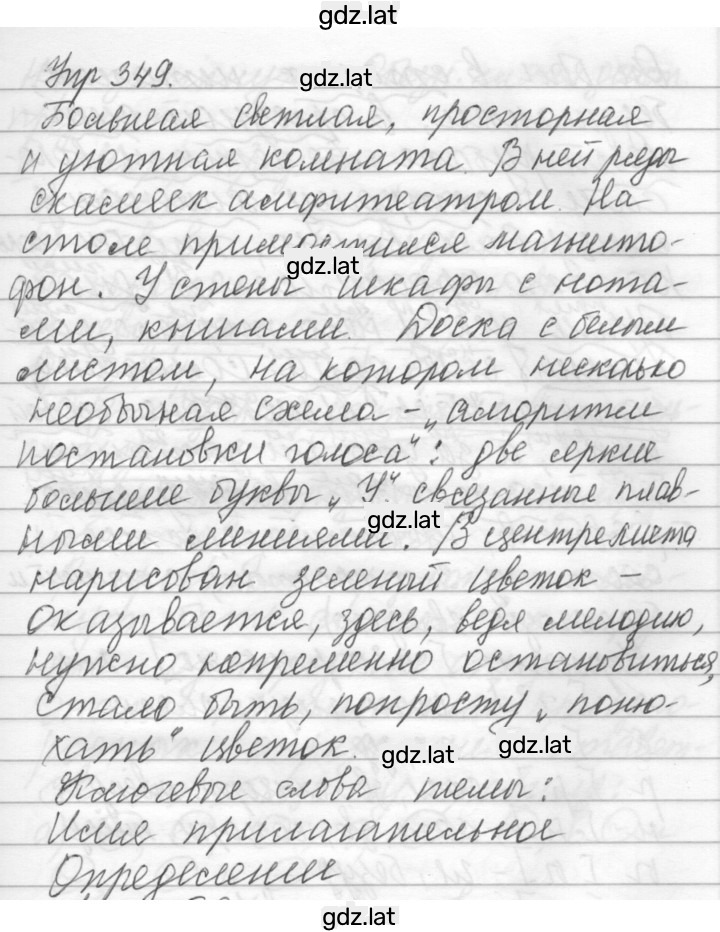 gdz.lat
Упр 349.
gdz.lat
Большая светлая, просторная
и уютная комната. В ней ряды
скамеек амфитеатром. На
столе примостился магнито-
gdz.lat
фон. У стены шкафы с нота-
ми, книгами. Доска с белым
листом, на котором несколько
необычная схема – „алгоритм
постановки голоса": две яркие
большие буквы „У". связанные плав-
gdz.lat
ными линиями. В центре листа
нарисован зеленый цветок –
оказывается, здесь, ведя мелодию,
нужно непременно остановиться,
стало быть, попросту „поню-
хать" цветок.
gdz.lat
gdz.lat
Ключевые слова темы:
Имя прилагательное
Определении
gdz.lat